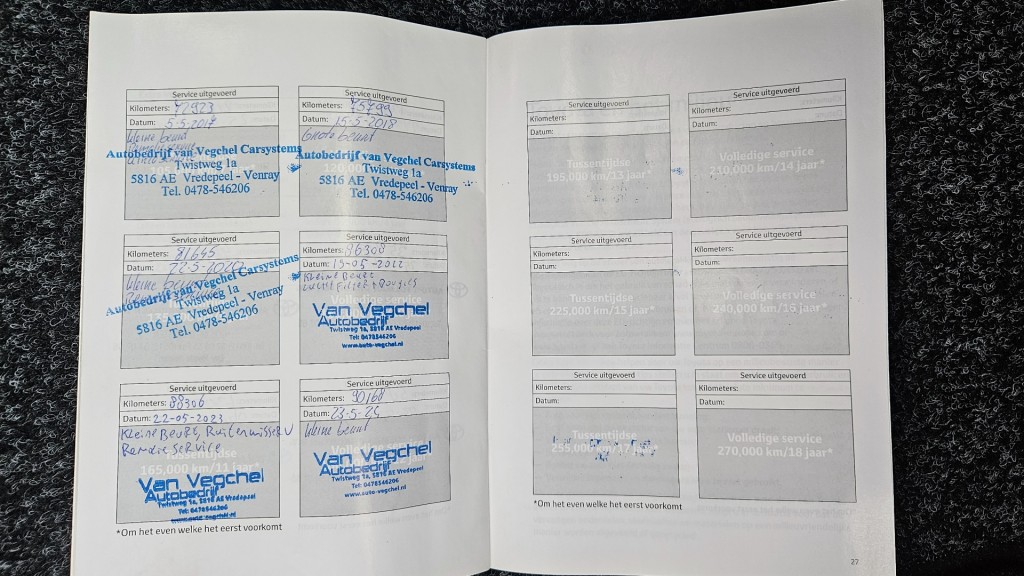 Service uitgevoerd
Kilometers: 72923
Datum: 5-5-2017
Kleine beurt
Autobedrijf van Vegchel Carsystems
Twistweg 1a
5816 AE Vredepeel - Venray
Tel. 0478-546206
Service uitgevoerd
Kilometers: 75799
Datum: 15-5-2018
Grote beurt
Autobedrijf van Vegchel Carsystems
Twistweg 1a
5816 AE Vredepeel - Venray
Tel. 0478-546206
Service uitgevoerd
Kilometers: 81645
Datum:
Kleine beurt
Autobedrijf van Vegchel Carsystems
Twistweg 1a
5816 AE Vredepeel - Venray
Tel. 0478-546206
Service uitgevoerd
Kilometers: 86308
Datum: 19-05-2022
Kleine Beurt
Volledige service
Van Vegchel
Autobedrijf
Twistweg 1a, 5816 AE Vredepeel
Tel: 0478546206
www.auto-vegchel.nl
Service uitgevoerd
Kilometers: 88306
Datum: 22-05-2023
Kleine Beurt, Ruitenwisser V
Remdie service
165,000 km/11 jaar*
Van Vegchel
Autobedrijf
Twistweg 1a, 5816 AE Vredepeel
Tel: 0478546206
www.auto-vegchel.nl
Service uitgevoerd
Kilometers: 90168
Datum: 23-5-24
Kleine beurt
Van Vegchel
Autobedrijf
Twistweg 1a, 5816 AE Vredepeel
Tel: 0478546206
www.auto-vegchel.nl
*Om het even welke het eerst voorkomt
Service uitgevoerd
Kilometers:
Datum:
Tussentijdse
195,000 km/13 jaar*
Service uitgevoerd
Kilometers:
Datum:
Volledige service
210,000 km/14 jaar*
Service uitgevoerd
Kilometers:
Datum:
Tussentijdse
225,000 km/15 jaar*
Service uitgevoerd
Kilometers:
Datum:
Volledige service
240,000 km/16 jaar*
Service uitgevoerd
Kilometers:
Datum:
Tussentijdse
255,000 km/17 jaar*
Service uitgevoerd
Kilometers:
Datum:
Volledige service
270,000 km/18 jaar*
*Om het even welke het eerst voorkomt
27